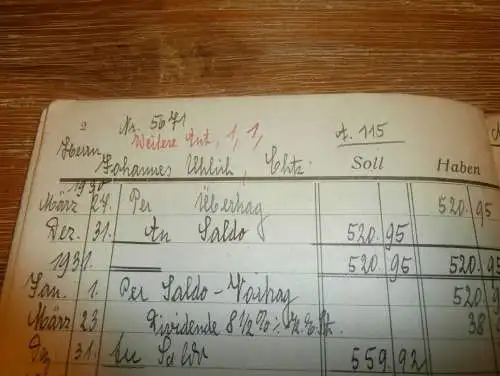 2 Nr. 5671
Weitere Ant. 1, 1, A. 115
Herrn Johannes Uhlich, Chtz. Soll Haben
1930
März 27. Per Übertrag 520.95
Dez. 31. An Saldo 520.95
1931. 520.95 520.95
Jan. 1. Per Saldo-Vortrag 520.
März 23 Dividende 8 1/2% 38
Dez 31. An Saldo 559.92